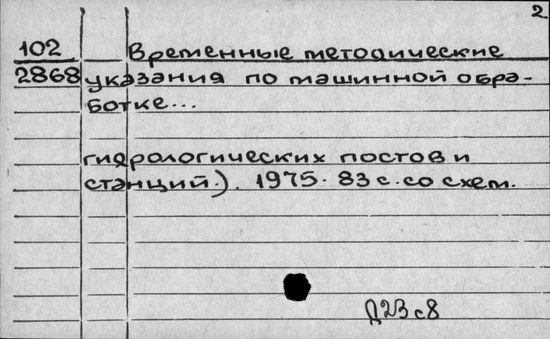 2
102
Временные методические
2868 указания по машинной обра-
ботке...
гидрологических постов и
станций.). 1975. 83 с. со схем.
Д23 с8